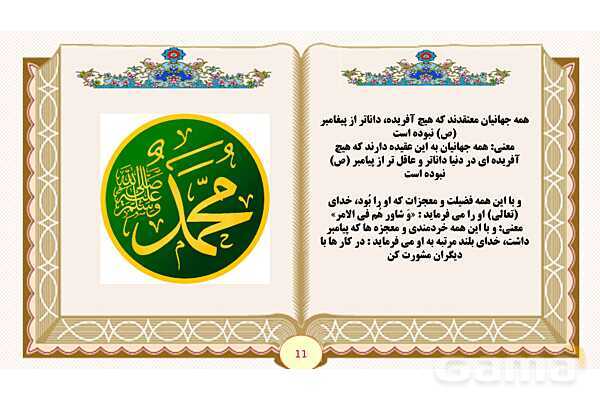 همه جهانیان معتقدند که هیچ آفریده، داناتر از پیغامبر
(ص) نبوده است
معنی: همه جهانیان به این عقیده دارند که هیچ
آفریده ای در دنیا داناتر و عاقل تر از پیامبر (ص)
نبوده است
و با این همه فضیلت و معجزات که او را بُود، خدای
(تعالی) او را می فرماید : «وَ شاوِر هُم فی الامر»
معنی: و با این همه خردمندی و معجزه ها که پیامبر
داشت، خدای بلند مرتبه به او می فرماید : در کار ها با
دیگران مشورت کن
محمد
صلى الله عليه وسلم
11
Gama